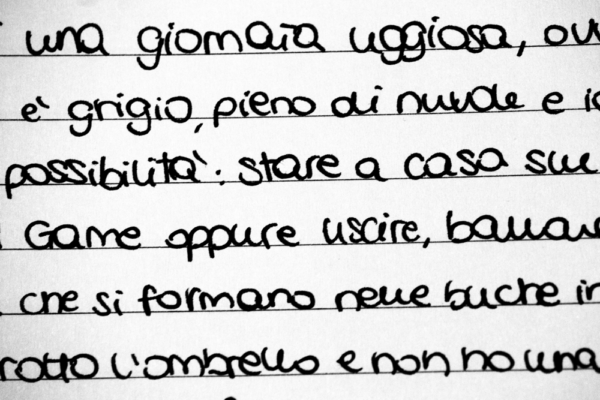 una giornata uggiosa, ov
è grigio, pieno di nuvole e io
possibilità: stare a casa sul
Game oppure uscire, ballare
che si formano nelle buche in
rotto l'ombrello e non ho una